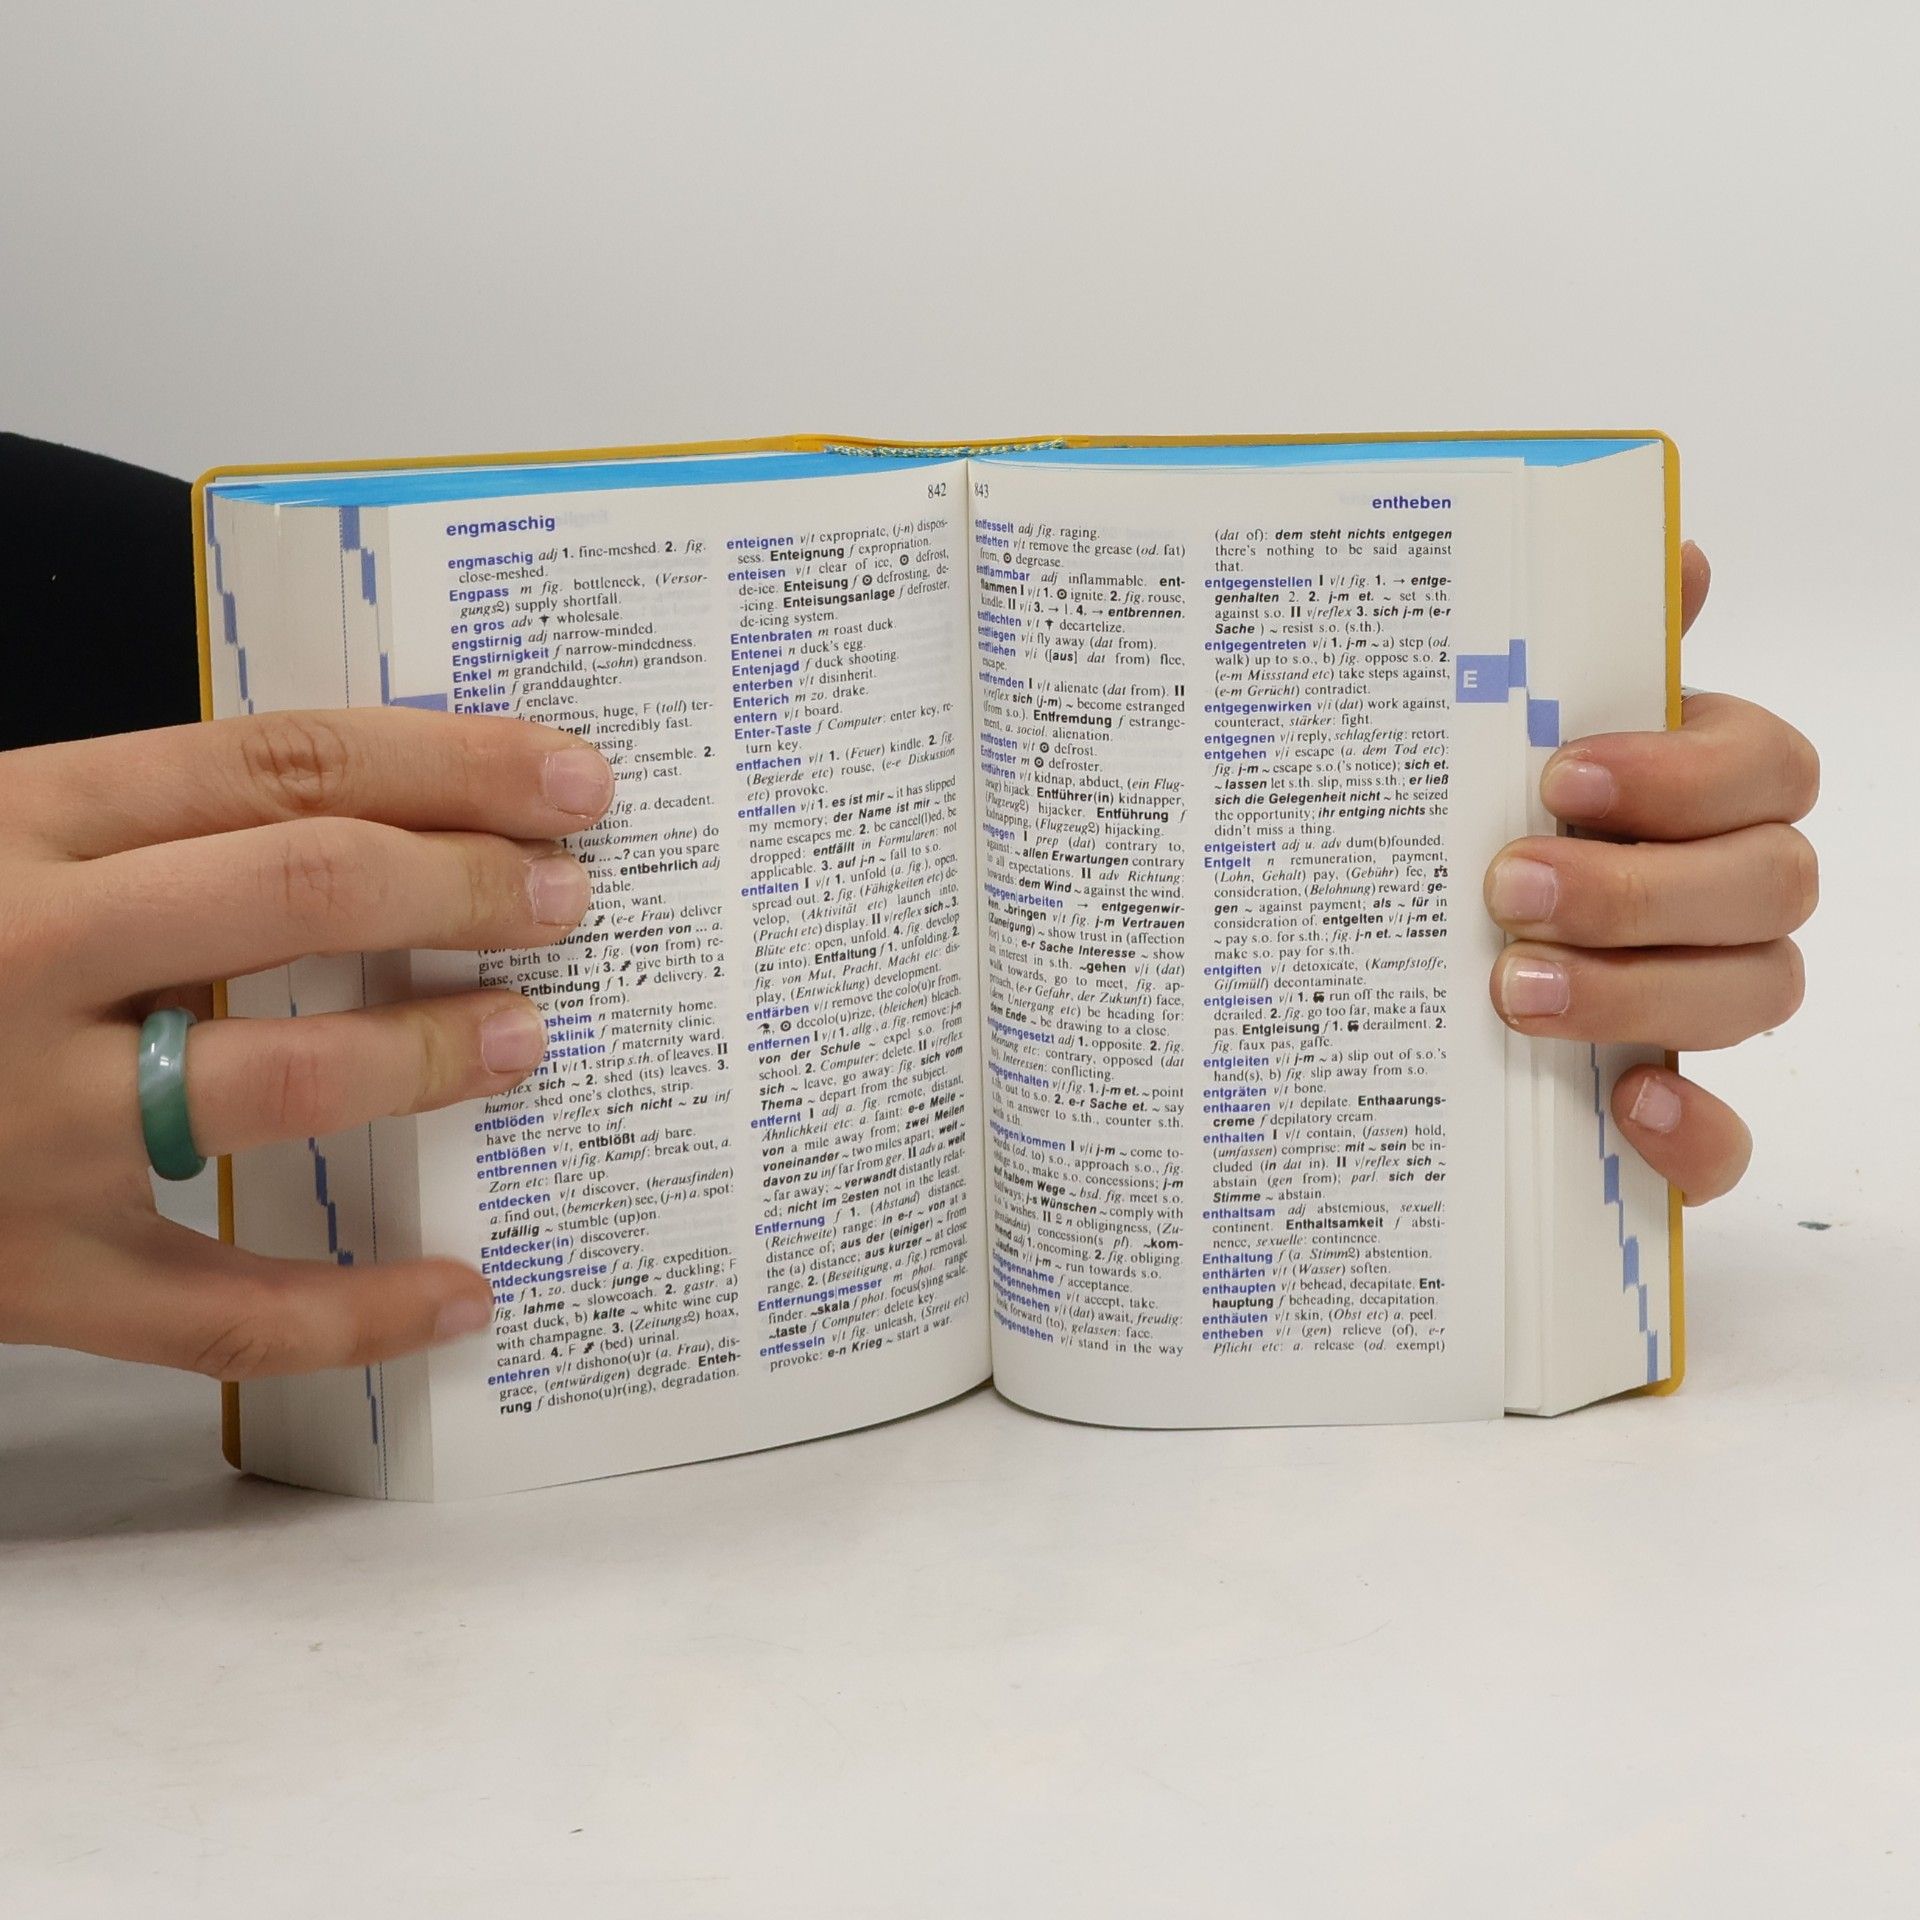 842
engmaschig
engmaschig adj 1. fine-meshed. 2. fig.
close-meshed.
Engpass m fig. bottleneck, (Versor-
gungs2) supply shortfall.
en gros adv wholesale.
engstirnig adj narrow-minded.
Engstirnigkeit f narrow-mindedness.
Enkel m grandchild, (~sohn) grandson.
Enkelin f granddaughter.
Enklave f enclave.
enormous, huge, F (toll) ter-
incredibly fast.
ensemble. 2.
cast.
fig. a. decadent.
1. (auskommen ohne) do
du ... ~? can you spare
entbehrlich adj
want.
(e-e Frau) deliver
werden von ... a.
give birth to ... 2. fig. (von from) re-
lease, excuse. II v/i 3. give birth to a
Entbindung f 1. delivery. 2.
(von from).
n maternity home.
f maternity clinic.
f maternity ward.
I v/t 1. strip s.th. of leaves. II
sich ~ 2. shed (its) leaves. 3.
humor. shed one's clothes, strip.
entblöden v/reflex sich nicht ~ zu inf
have the nerve to inf.
entblößen v/t, entblößt adj bare.
entbrennen v/i fig. Kampf: break out, a.
Zorn etc: flare up.
entdecken v/t discover, (herausfinden)
a. find out, (bemerken) see, (j-n) a. spot:
zufällig ~ stumble (up)on.
Entdecker(in) discoverer.
Entdeckung f discovery.
f a. fig. expedition.
f 1. zo. duck: junge ~ duckling; F
fig. lahme ~ slowcoach. 2. gastr. a)
roast duck, b) kalte ~ white wine cup
with champagne. 3. (Zeitungs2) hoax,
canard. 4. F (bed) urinal.
entehren v/t dishono(u)r (a. Frau), dis-
grace, (entwürdigen) degrade. Enteh-
rung f dishono(u)r(ing), degradation.
enteignen v/t expropriate, (j-n) dispos-
sess. Enteignung f expropriation.
enteisen v/t clear of ice, ⊙ defrost,
de-ice. Enteisung f ⊙ defrosting, de-
-icing. Enteisungsanlage f defroster,
de-icing system.
Entenbraten m roast duck.
Entenei n duck's egg.
Entenjagd f duck shooting.
enterben v/t disinherit.
Enterich m zo. drake.
entern v/t board.
Enter-Taste f Computer: enter key, re-
turn key.
entfachen v/t 1. (Feuer) kindle. 2. fig.
(Begierde etc) rouse, (e-e Diskussion
etc) provoke.
entfallen v/i 1. es ist mir ~ it has slipped
my memory; der Name ist mir ~ the
name escapes me. 2. be cancel(l)ed, be
dropped: entfällt in Formularen: not
applicable. 3. auf j-n ~ fall to s.o.
entfalten I v/t 1. unfold (a. fig.), open,
spread out. 2. fig. (Fähigkeiten etc) de-
velop, (Aktivität etc) launch into,
(Pracht etc) display. II v/reflex sich ~ 3.
Blüte etc: open, unfold. 4. fig. develop
(zu into). Entfaltung f 1. unfolding. 2.
fig. von Mut, Pracht, Macht etc: dis-
play, (Entwicklung) development.
entfärben v/t remove the colo(u)r from,
⊙ decolo(u)rize, (bleichen) bleach.
entfernen I v/t 1. allg., a. fig. remove: j-n
von der Schule ~ expel s.o. from
school. 2. Computer: delete. II v/reflex
sich ~ leave, go away: fig. sich vom
Thema ~ depart from the subject.
entfernt I adj a. fig. remote, distant,
Ähnlichkeit etc: a. faint: e-e Meile ~
von a mile away from; zwei Meilen
voneinander ~ two miles apart; weit ~
davon zu inf far from ger. II adv a. weit
~ far away; ~ verwandt distantly relat-
ed; nicht im 2esten not in the least.
Entfernung f 1. (Abstand) distance,
(Reichweite) range: in e-r ~ von at a
distance of; aus der (einiger) ~ from
the (a) distance; aus kurzer ~ at close
range. 2. (Beseitigung, a. fig.) removal.
Entfernungs|messer m phot. range
finder. ~skala f phot. focus(s)ing scale.
~taste f Computer: delete key.
entfesseln v/t fig. unleash, (Streit etc)
provoke: e-n Krieg ~ start a war.
843
entheben
entfesselt adj fig. raging.
entfetten v/t remove the grease (od. fat)
from, ⊙ degrease.
entflammbar adj inflammable. ent-
flammen I v/t 1. ⊙ ignite. 2. fig. rouse,
kindle. II v/i 3. → 1. 4. → entbrennen.
entflechten v/t decartelize.
entfliegen v/i fly away (dat from).
entfliehen v/i ([aus] dat from) flee,
escape.
entfremden I v/t alienate (dat from). II
v/reflex sich (j-m) ~ become estranged
(from s.o.). Entfremdung f estrange-
ment, a. sociol. alienation.
entfrosten v/t ⊙ defrost.
Entfroster m ⊙ defroster.
entführen v/t kidnap, abduct, (ein Flug-
zeug) hijack. Entführer(in) kidnapper,
(Flugzeug2) hijacker. Entführung f
kidnapping, (Flugzeug2) hijacking.
entgegen I prep (dat) contrary to,
against: ~ allen Erwartungen contrary
to all expectations. II adv Richtung:
towards: dem Wind ~ against the wind.
entgegen|arbeiten → entgegenwir-
ken. ~bringen v/t fig. j-m Vertrauen
(Zuneigung) ~ show trust in (affection
for) s.o.; e-r Sache Interesse ~ show
an interest in s.th. ~gehen v/i (dat)
walk towards, go to meet, fig. ap-
proach, (e-r Gefahr, der Zukunft) face,
(dem Untergang etc) be heading for:
dem Ende ~ be drawing to a close.
entgegengesetzt adj 1. opposite. 2. fig.
Meinung etc: contrary, opposed (dat
to), Interessen: conflicting.
entgegenhalten v/t fig. 1. j-m et. ~ point
s.th. out to s.o. 2. e-r Sache et. ~ say
s.th. in answer to s.th., counter s.th.
with s.th.
entgegen|kommen I v/i j-m ~ come to-
wards (od. to) s.o., approach s.o., fig.
oblige s.o., make s.o. concessions; j-m
auf halbem Wege ~ bsd. fig. meet s.o.
halfway; j-s Wünschen ~ comply with
s.o.'s wishes. II 2 n obligingness, (Zu-
geständnis) concession(s pl). ~kom-
mend adj 1. oncoming. 2. fig. obliging.
~laufen v/i j-m ~ run towards s.o.
Entgegennahme f acceptance.
entgegennehmen v/t accept, take.
entgegensehen v/i (dat) await, freudig:
look forward (to), gelassen: face.
entgegenstehen v/i stand in the way
(dat of): dem steht nichts entgegen
there's nothing to be said against
that.
entgegenstellen I v/t fig. 1. → entge-
genhalten 2. 2. j-m et. ~ set s.th.
against s.o. II v/reflex 3. sich j-m (e-r
Sache ) ~ resist s.o. (s.th.).
entgegentreten v/i 1. j-m ~ a) step (od.
walk) up to s.o., b) fig. oppose s.o. 2.
(e-m Missstand etc) take steps against,
(e-m Gerücht) contradict.
entgegenwirken v/i (dat) work against,
counteract, stärker: fight.
entgegnen v/i reply, schlagfertig: retort.
entgehen v/i escape (a. dem Tod etc):
fig. j-m ~ escape s.o.('s notice); sich et.
~ lassen let s.th. slip, miss s.th.; er ließ
sich die Gelegenheit nicht ~ he seized
the opportunity; ihr entging nichts she
didn't miss a thing.
entgeistert adj u. adv dum(b)founded.
Entgelt n remuneration, payment,
(Lohn, Gehalt) pay, (Gebühr) fee,
consideration, (Belohnung) reward: ge-
gen ~ against payment; als ~ für in
consideration of. entgelten v/t j-m et.
~ pay s.o. for s.th.; fig. j-n et. ~ lassen
make s.o. pay for s.th.
entgiften v/t detoxicate, (Kampfstoffe,
Giftmüll) decontaminate.
entgleisen v/i 1. run off the rails, be
derailed. 2. fig. go too far, make a faux
pas. Entgleisung f 1. derailment. 2.
fig. faux pas, gaffe.
entgleiten v/i j-m ~ a) slip out of s.o.'s
hand(s), b) fig. slip away from s.o.
entgräten v/t bone.
enthaaren v/t depilate. Enthaarungs-
creme f depilatory cream.
enthalten I v/t contain, (fassen) hold,
(umfassen) comprise: mit ~ sein be in-
cluded (in dat in). II v/reflex sich ~
abstain (gen from); parl. sich der
Stimme ~ abstain.
enthaltsam adj abstemious, sexuell:
continent. Enthaltsamkeit f absti-
nence, sexuelle: continence.
Enthaltung f (a. Stimm2) abstention.
enthärten v/t (Wasser) soften.
enthaupten v/t behead, decapitate. Ent-
hauptung f beheading, decapitation.
enthäuten v/t skin, (Obst etc) a. peel.
entheben v/t (gen) relieve (of), e-r
Pflicht etc: a. release (od. exempt)
E